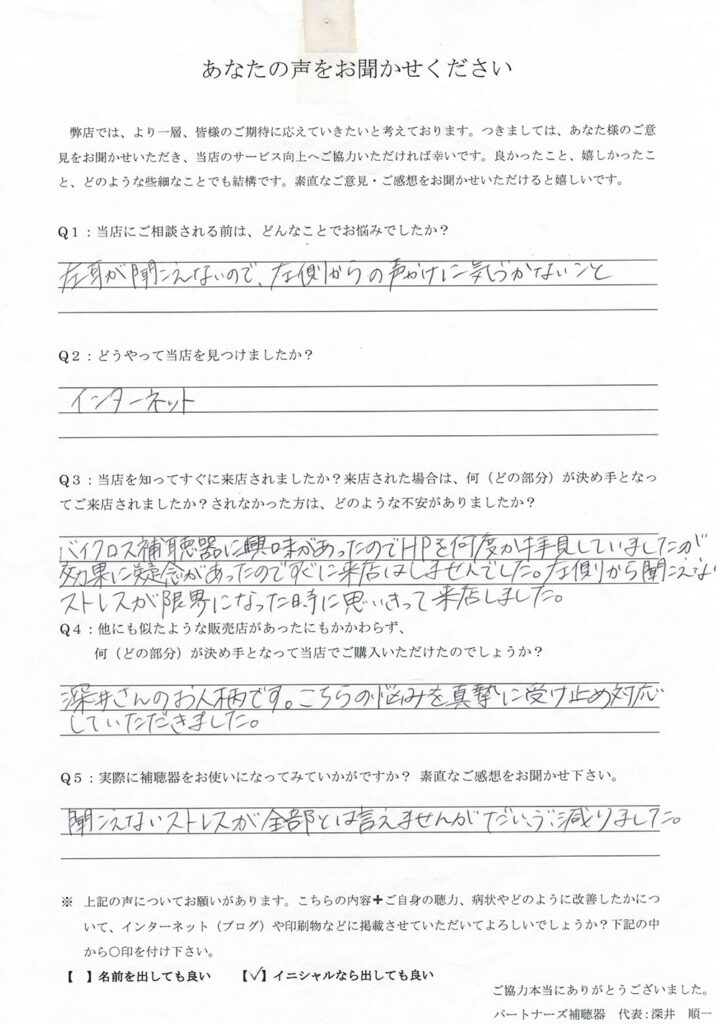 あなたの声をお聞かせください
弊店では、より一層、皆様のご期待に応えていきたいと考えております。つきましては、あなた様のご意
見をお聞かせいただき、当店のサービス向上へご協力いただければ幸いです。良かったこと、嬉しかったこ
と、どのような些細なことでも結構です。素直なご意見・ご感想をお聞かせいただけると嬉しいです。
Q1：当店にご相談される前は、どんなことでお悩みでしたか？
左耳が聞こえないので、左側からの声かけに気づかないこと
Q2：どうやって当店を見つけましたか？
インターネット
Q3：当店を知ってすぐに来店されましたか？来店された場合は、何（どの部分）が決め手となっ
てご来店されましたか？されなかった方は、どのような不安がありましたか？
バイクロス補聴器に興味があったのでHPを何度か拝見していましたが
効果に疑念があったのですぐに来店はしませんでした。左側から聞こえない
ストレスが限界になった時に思いきって来店しました。
Q4：他にも似たような販売店があったにもかかわらず、
何（どの部分）が決め手となって当店でご購入いただけたのでしょうか？
深井さんのお人柄です。こちらの悩みを真摯に受け止め対応
していただきました。
Q5：実際に補聴器をお使いになってみていかがですか？ 素直なご感想をお聞かせ下さい。
聞こえないストレスが全部とは言えませんがだいぶ減りました。
※ 上記の声についてお願いがあります。こちらの内容＋ご自身の聴力、病状やどのように改善したかにつ
いて、インターネット（ブログ）や印刷物などに掲載させていただいてよろしいでしょうか？下記の中
から〇印を付け下さい。
【 】名前を出しても良い 【✓】イニシャルなら出しても良い
ご協力本当にありがとうございました。
パートナーズ補聴器 代表：深井 順一